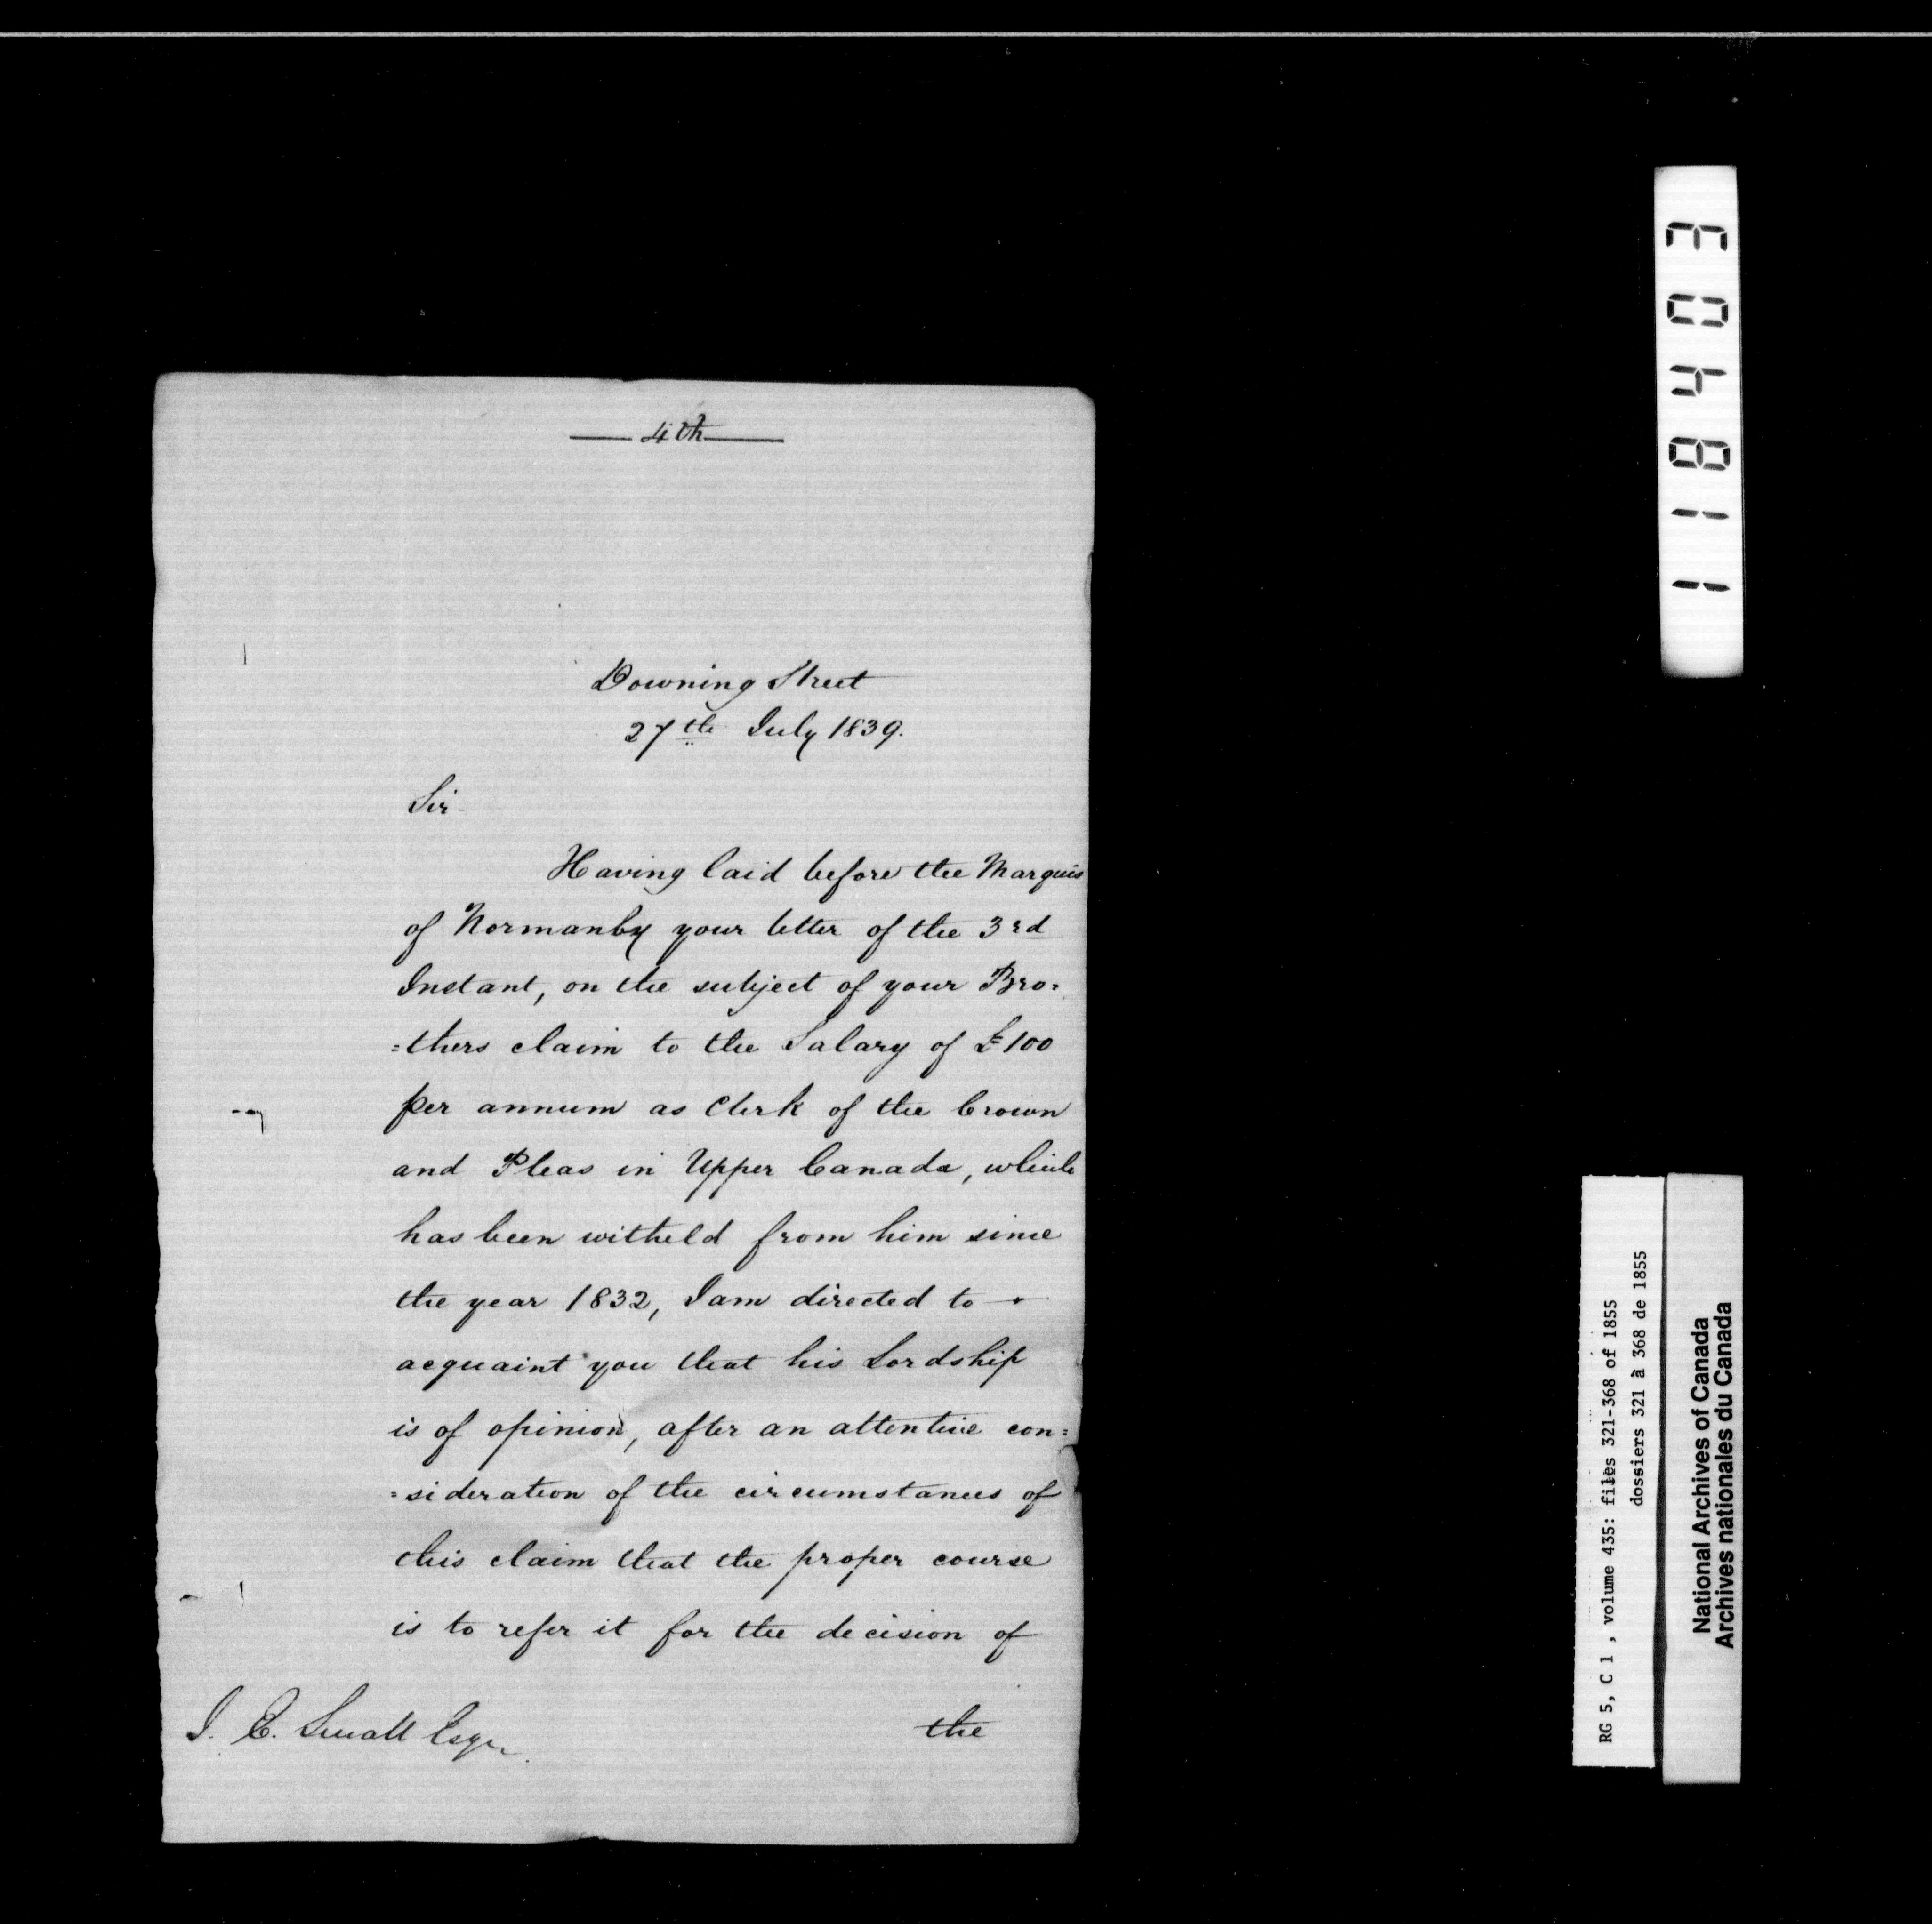 4th
Downing Street
27th July 1839.
Sir
Having laid before the Marquis
of Normanby your letter of the 3rd
Instant, on the subject of your Bro=
=thers claim to the Salary of £100
per annum as Clerk of the Crown
and Pleas in Upper Canada, which
has been witheld from him since
the year 1832, I am directed to
acquaint you that his Lordship
is of opinion, after an attentive con=
=sideration of the circumstances of
this claim that the proper course
is to refer it for the decision of
the
J. E. Small Esqr.
118403
RG 5, C 1 , volume 435: files 321-368 of 1855
dossiers 321 à 368 de 1855
National Archives of Canada
Archives nationales du Canada